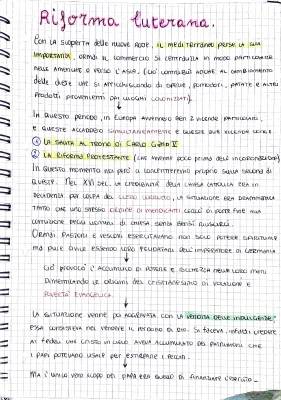 Riforma luterana.
Con la scoperta delle nuove rotte, il mediterraneo perse la sua
importanza, ormai il commercio si centralizza in modo particolare
nelle Americhe e verso l'Asia. Ciò contribuì anche al cambiamento
delle diete che si arricchiscono di spezie, pomodori, patate e altri
prodotti provenienti dai luoghi colonizzati.
In questo periodo, in Europa avvennero ben 2 vicende particolari,
e queste accaddero simultaneamente e queste due vicende sono:
1 La salita al trono di Carlo V
2 La riforma protestante (che avviene poco prima dell'incoronazione)
In questo momento noi però ci concentreremo proprio sulla seconda di
queste. Nel XVI sec. la credibilità della chiesa cattolica era in
decadenza per colpa del clero corrotto, la situazione era drammatica
tanto che uno stesso ordine di mendicanti cercò di porre fine alla
corruzione degli uomini di chiesa senza però riuscirci.
Ormai pastori e vescovi esercitavano non solo potere spirituale
ma pure civile essendo loro feudatari dell'imperatore di Germania
Ciò provocò l'accumulo di potere e ricchezza nelle loro mani
dimenticando le origini del cristianesimo di volontà e
povertà evangelica
La situazione venne poi aggravata con la vendita delle indulgenze
essa consisteva nel vendere il perdono di Dio. Si faceva, infatti credere
ai fedeli che Cristo in cielo aveva accumulato dei patrimoni che
i papi potevano usare per estirpare i peccati.
Ma l'unico vero scopo del papa era quello di finanziare l'esercito